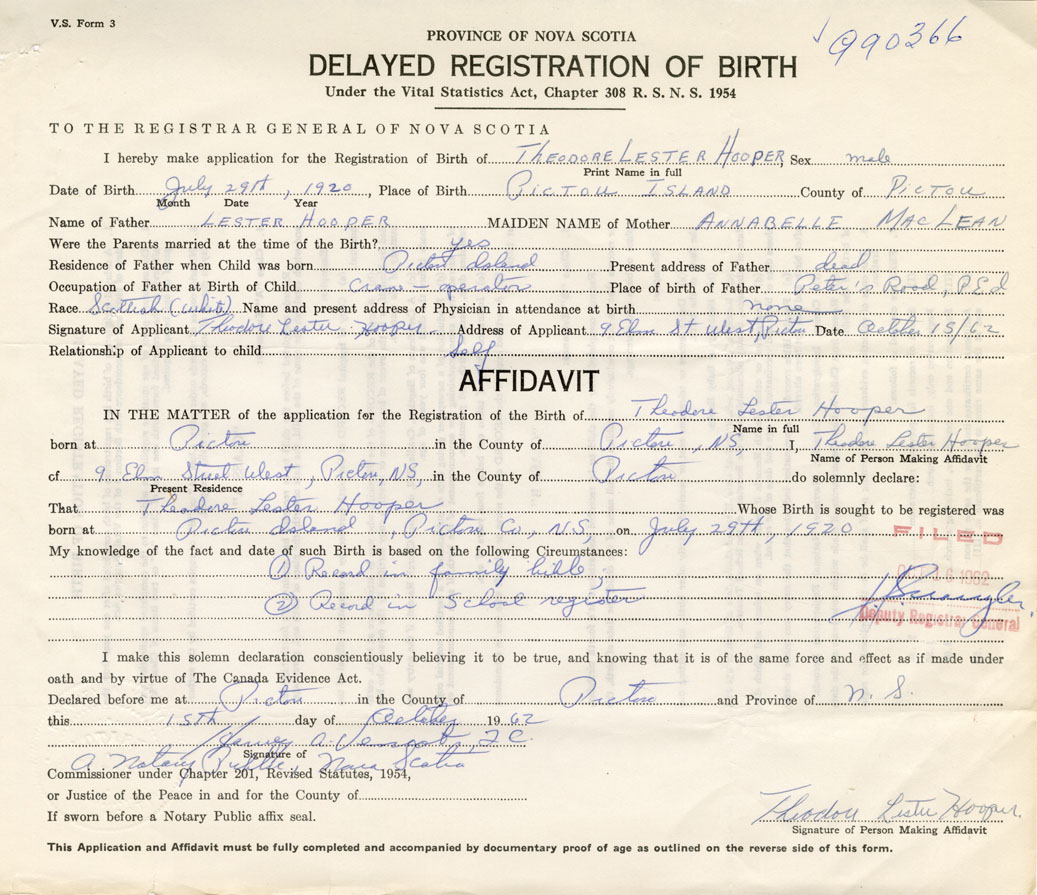 V.S. Form 3
990366
PROVINCE OF NOVA SCOTIA
DELAYED REGISTRATION OF BIRTH
Under the Vital Statistics Act, Chapter 308 R. S. N. S. 1954
TO THE REGISTRAR GENERAL OF NOVA SCOTIA
I hereby make application for the Registration of Birth of THEODORE LESTER HOOPER, Sex male
Print Name in full
Date of Birth July 29th, 1920, Place of Birth PICTOU ISLAND County of PICTOU
Month Date Year
Name of Father LESTER HOOPER MAIDEN NAME of Mother ANNABELLE MACLEAN
Were the Parents married at the time of the Birth? yes
Residence of Father when Child was born Pictou Island Present address of Father dead
Occupation of Father at Birth of Child Crane-operator Place of birth of Father Peter's Road, P.E.I
Race Scottish (white) Name and present address of Physician in attendance at birth none
Signature of Applicant Theodore Lester Hooper Address of Applicant 9 Elm St West, Pictou Date October 15/62
Relationship of Applicant to child Self
AFFIDAVIT
IN THE MATTER of the application for the Registration of the Birth of Theodore Lester Hooper
Name in full
born at Pictou in the County of Pictou, NS, I, Theodore Lester Hooper
Name of Person Making Affidavit
of 9 Elm Street West, Pictou, NS, in the County of Pictou do solemnly declare:
Present Residence
That Theodore Lester Hooper Whose Birth is sought to be registered was
born at Pictou Island, Pictou Co., N.S, on July 29th, 1920
FILED
My knowledge of the fact and date of such Birth is based on the following Circumstances:
① Record in family bible,
1962
② Record in School register
Deputy Registrar General
I make this solemn declaration conscientiously believing it to be true, and knowing that it is of the same force and effect as if made under
oath and by virtue of The Canada Evidence Act.
Declared before me at Pictou in the County of Pictou and Province of N. S.
this 15th day of October 1962
Harvey A.
Signature of
A Notary Public, Nova Scotia
Commissioner under Chapter 201, Revised Statutes, 1954,
or Justice of the Peace in and for the County of
If sworn before a Notary Public affix seal.
Theodore Lester Hooper
Signature of Person Making Affidavit
This Application and Affidavit must be fully completed and accompanied by documentary proof of age as outlined on the reverse side of this form.